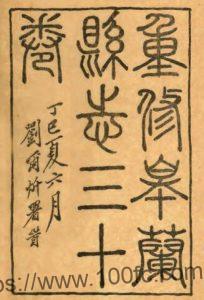 重修皋蘭
縣志三十
卷
丁巳夏六月
劉爾炘署耑
https://www.100fc.com